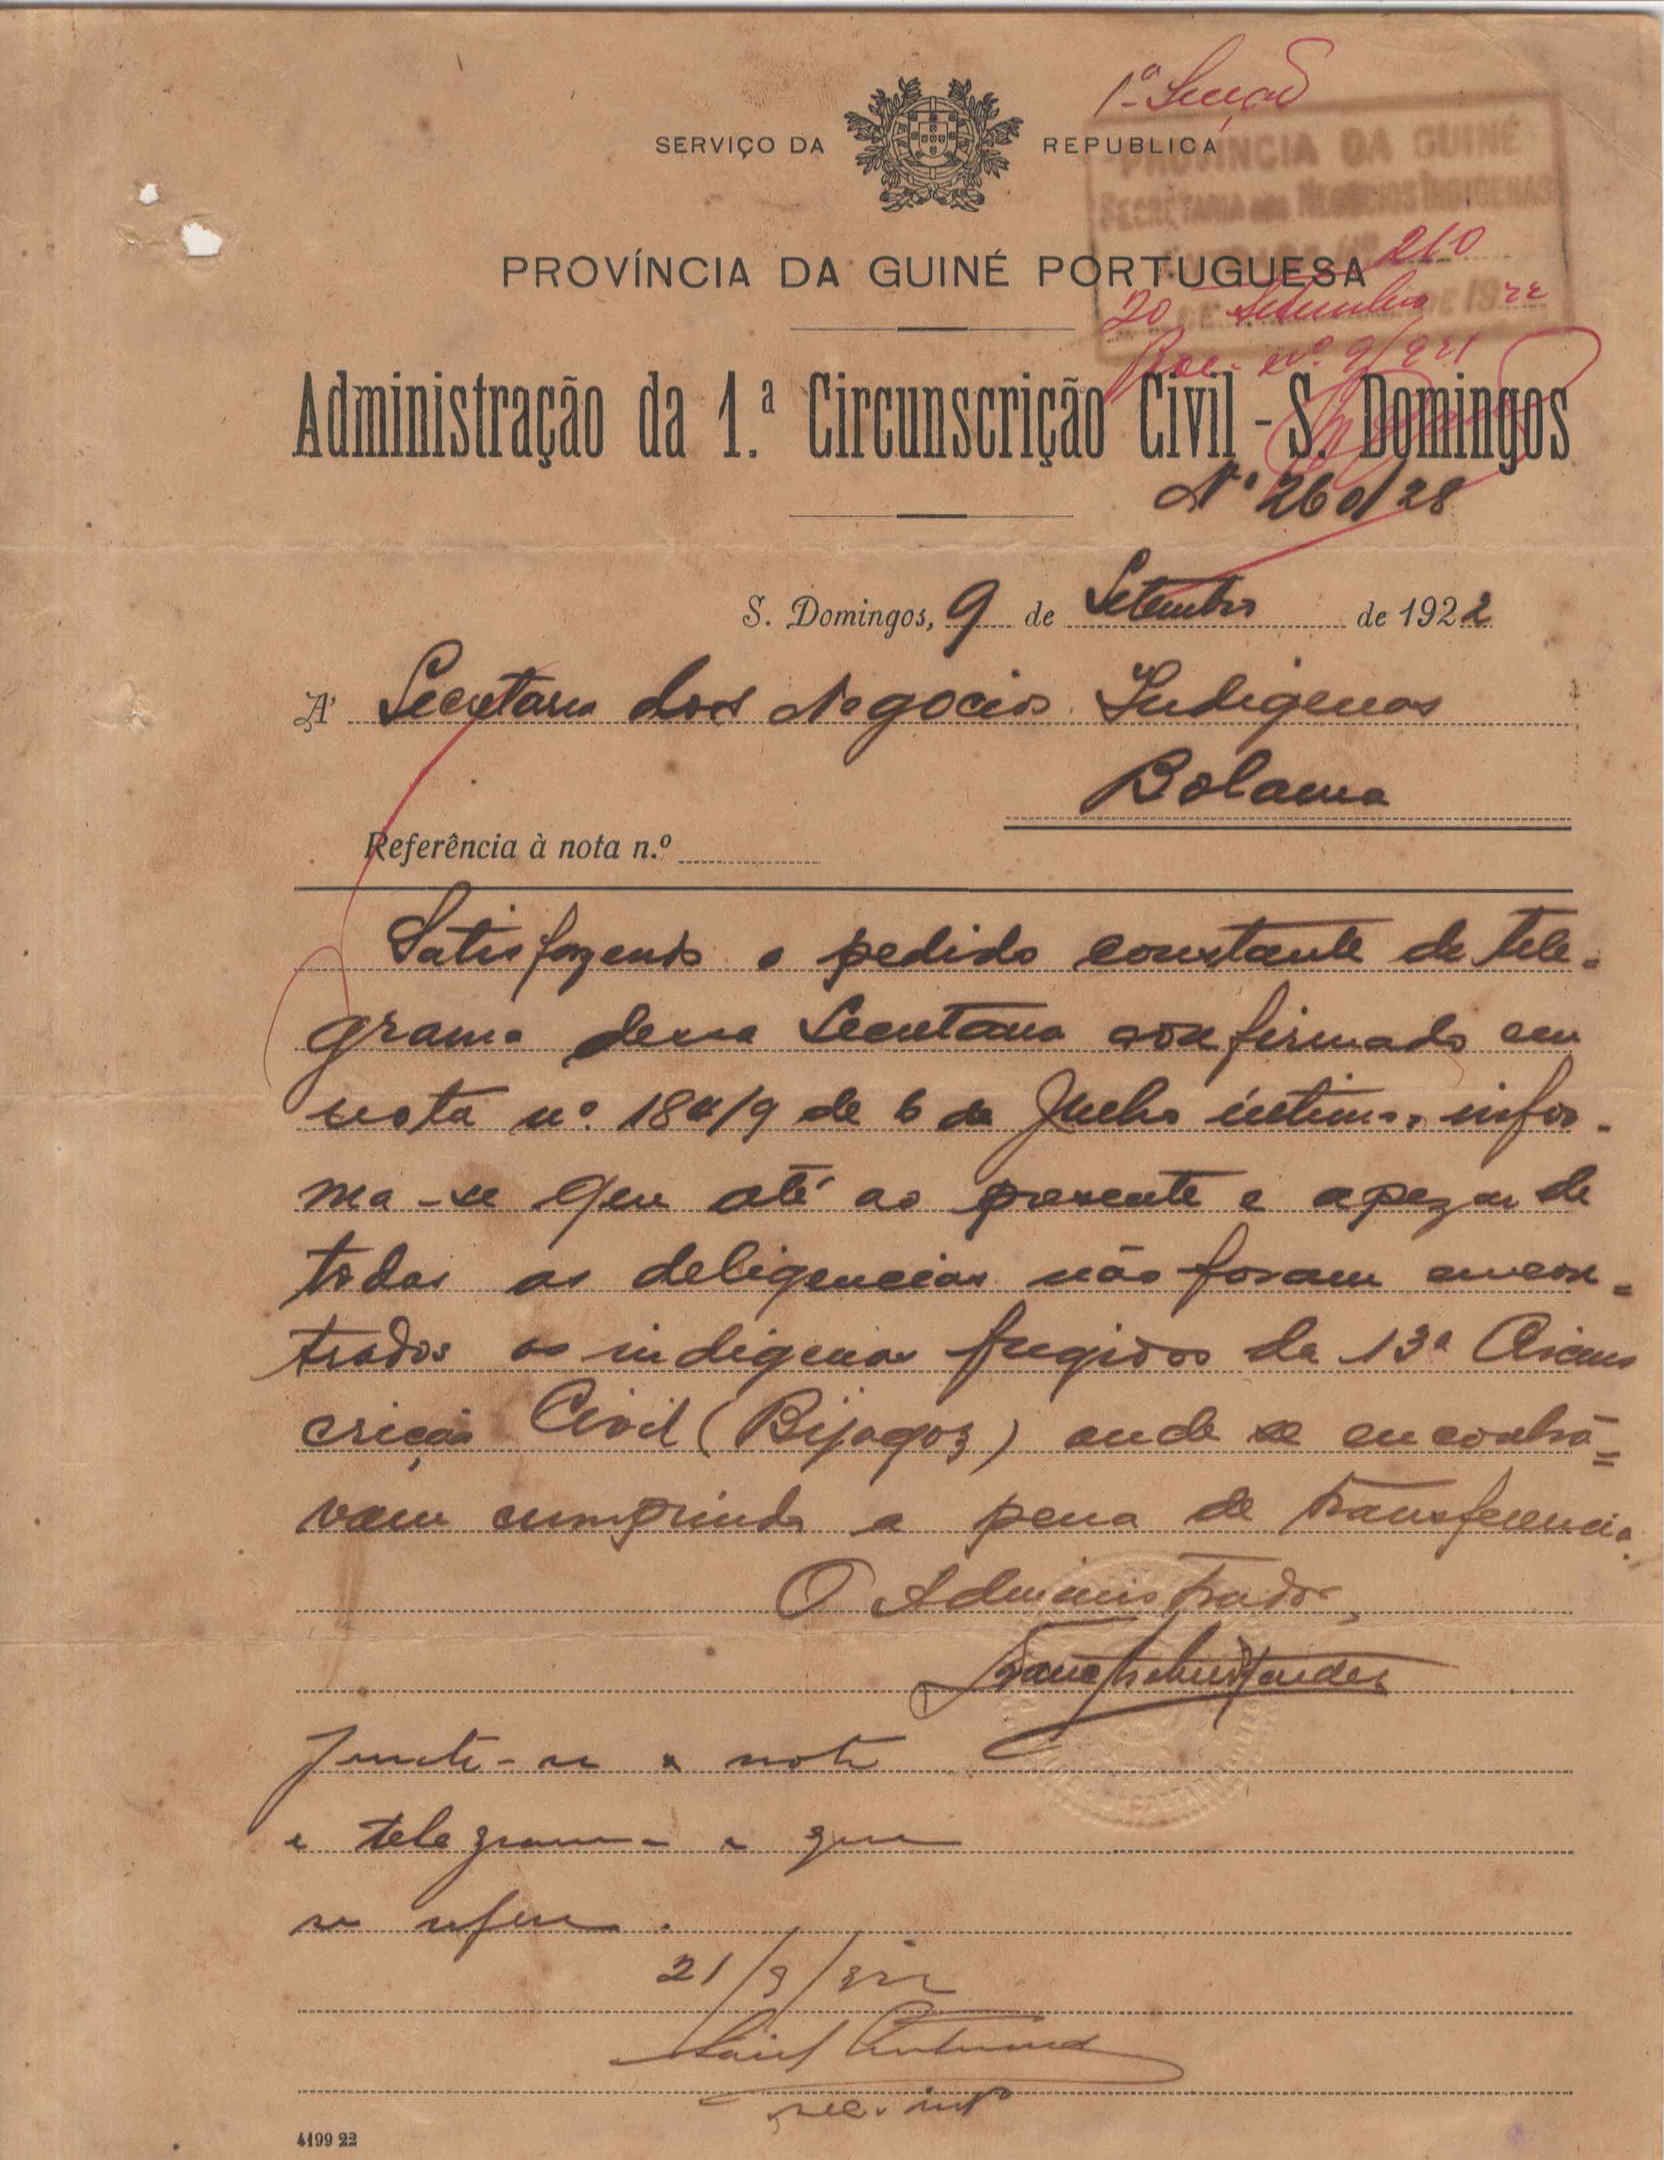 1ª Secção
SERVIÇO DA REPUBLICA
PROVÍNCIA DA GUINÉ
SECRETARIA DOS NEGOCIOS INDIGENAS
210
PROVÍNCIA DA GUINÉ PORTUGUESA
20 DE Setembro DE 1922
Proc. nº 9/921
Administração da 1.ª Circunscrição Civil - S. Domingos
Nº 260/28
S. Domingos, 9 de Setembro de 1922
A' Secretaria dos Negocios Indigenas
Bolama
Referência à nota n.º
Satisfazendo o pedido constante de tele-
grama dessa Secretaria confirmado em
nota nº 184/9 de 6 de Julho ultimo, infor-
ma-se que até ao presente e apezar de
todas as deligencias não foram encon-
trados os indigenas fugidos da 13ª Circuns
crição Civil (Bijagoz) onde se encontrá-
vam cumprindo a pena de transferencia.
O Administrador,
Junte-se a nota
e telegrama a que
se refere.
21/9/922
sec. intº
4199 22